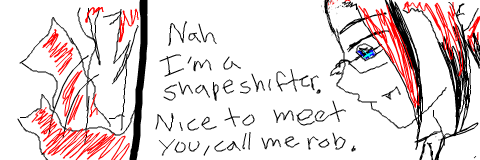 Nah
I'm a
shapeshifter.
Nice to meet
you, call me rob.